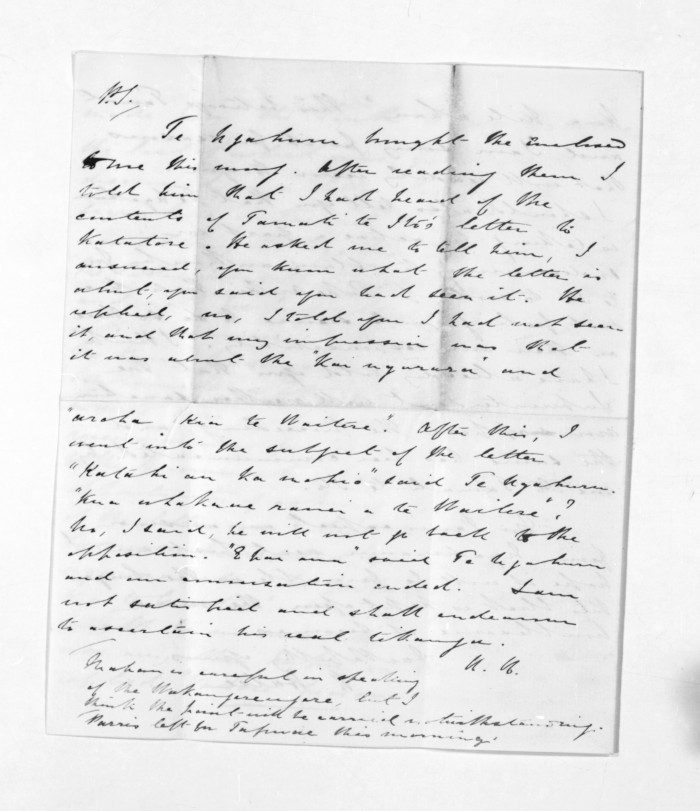 P.S./
Te Ngahuru brought the Enclosed
to me this morng. After reading them I
told him that I had heard of the
contents of Tamati te Ito's letter to
Katatore. He asked me to tell him, I
answered, you know what the letter is
about, you said you had seen it. He
replied, no, I told you I had not seen
it, and that my impression was that
it was about the "Kai ngarara" and
"aroha kia te Waitere". After this, I
went into the subject of the letter
"Katahi au ka mohio" said Te Ngahuru.
"Kua whakaae ranei a te Waitere"?
No, I said, he will not go back to the
opposition. "E pai ana" said Te Ngahuru
and our conversation ended. I am
not satisfied and shall endeavour
to ascertain his real tikanga.
Mahau is careful in speaking
of the but I
think the point will be carried notwithstanding.
Parris left for this morning.